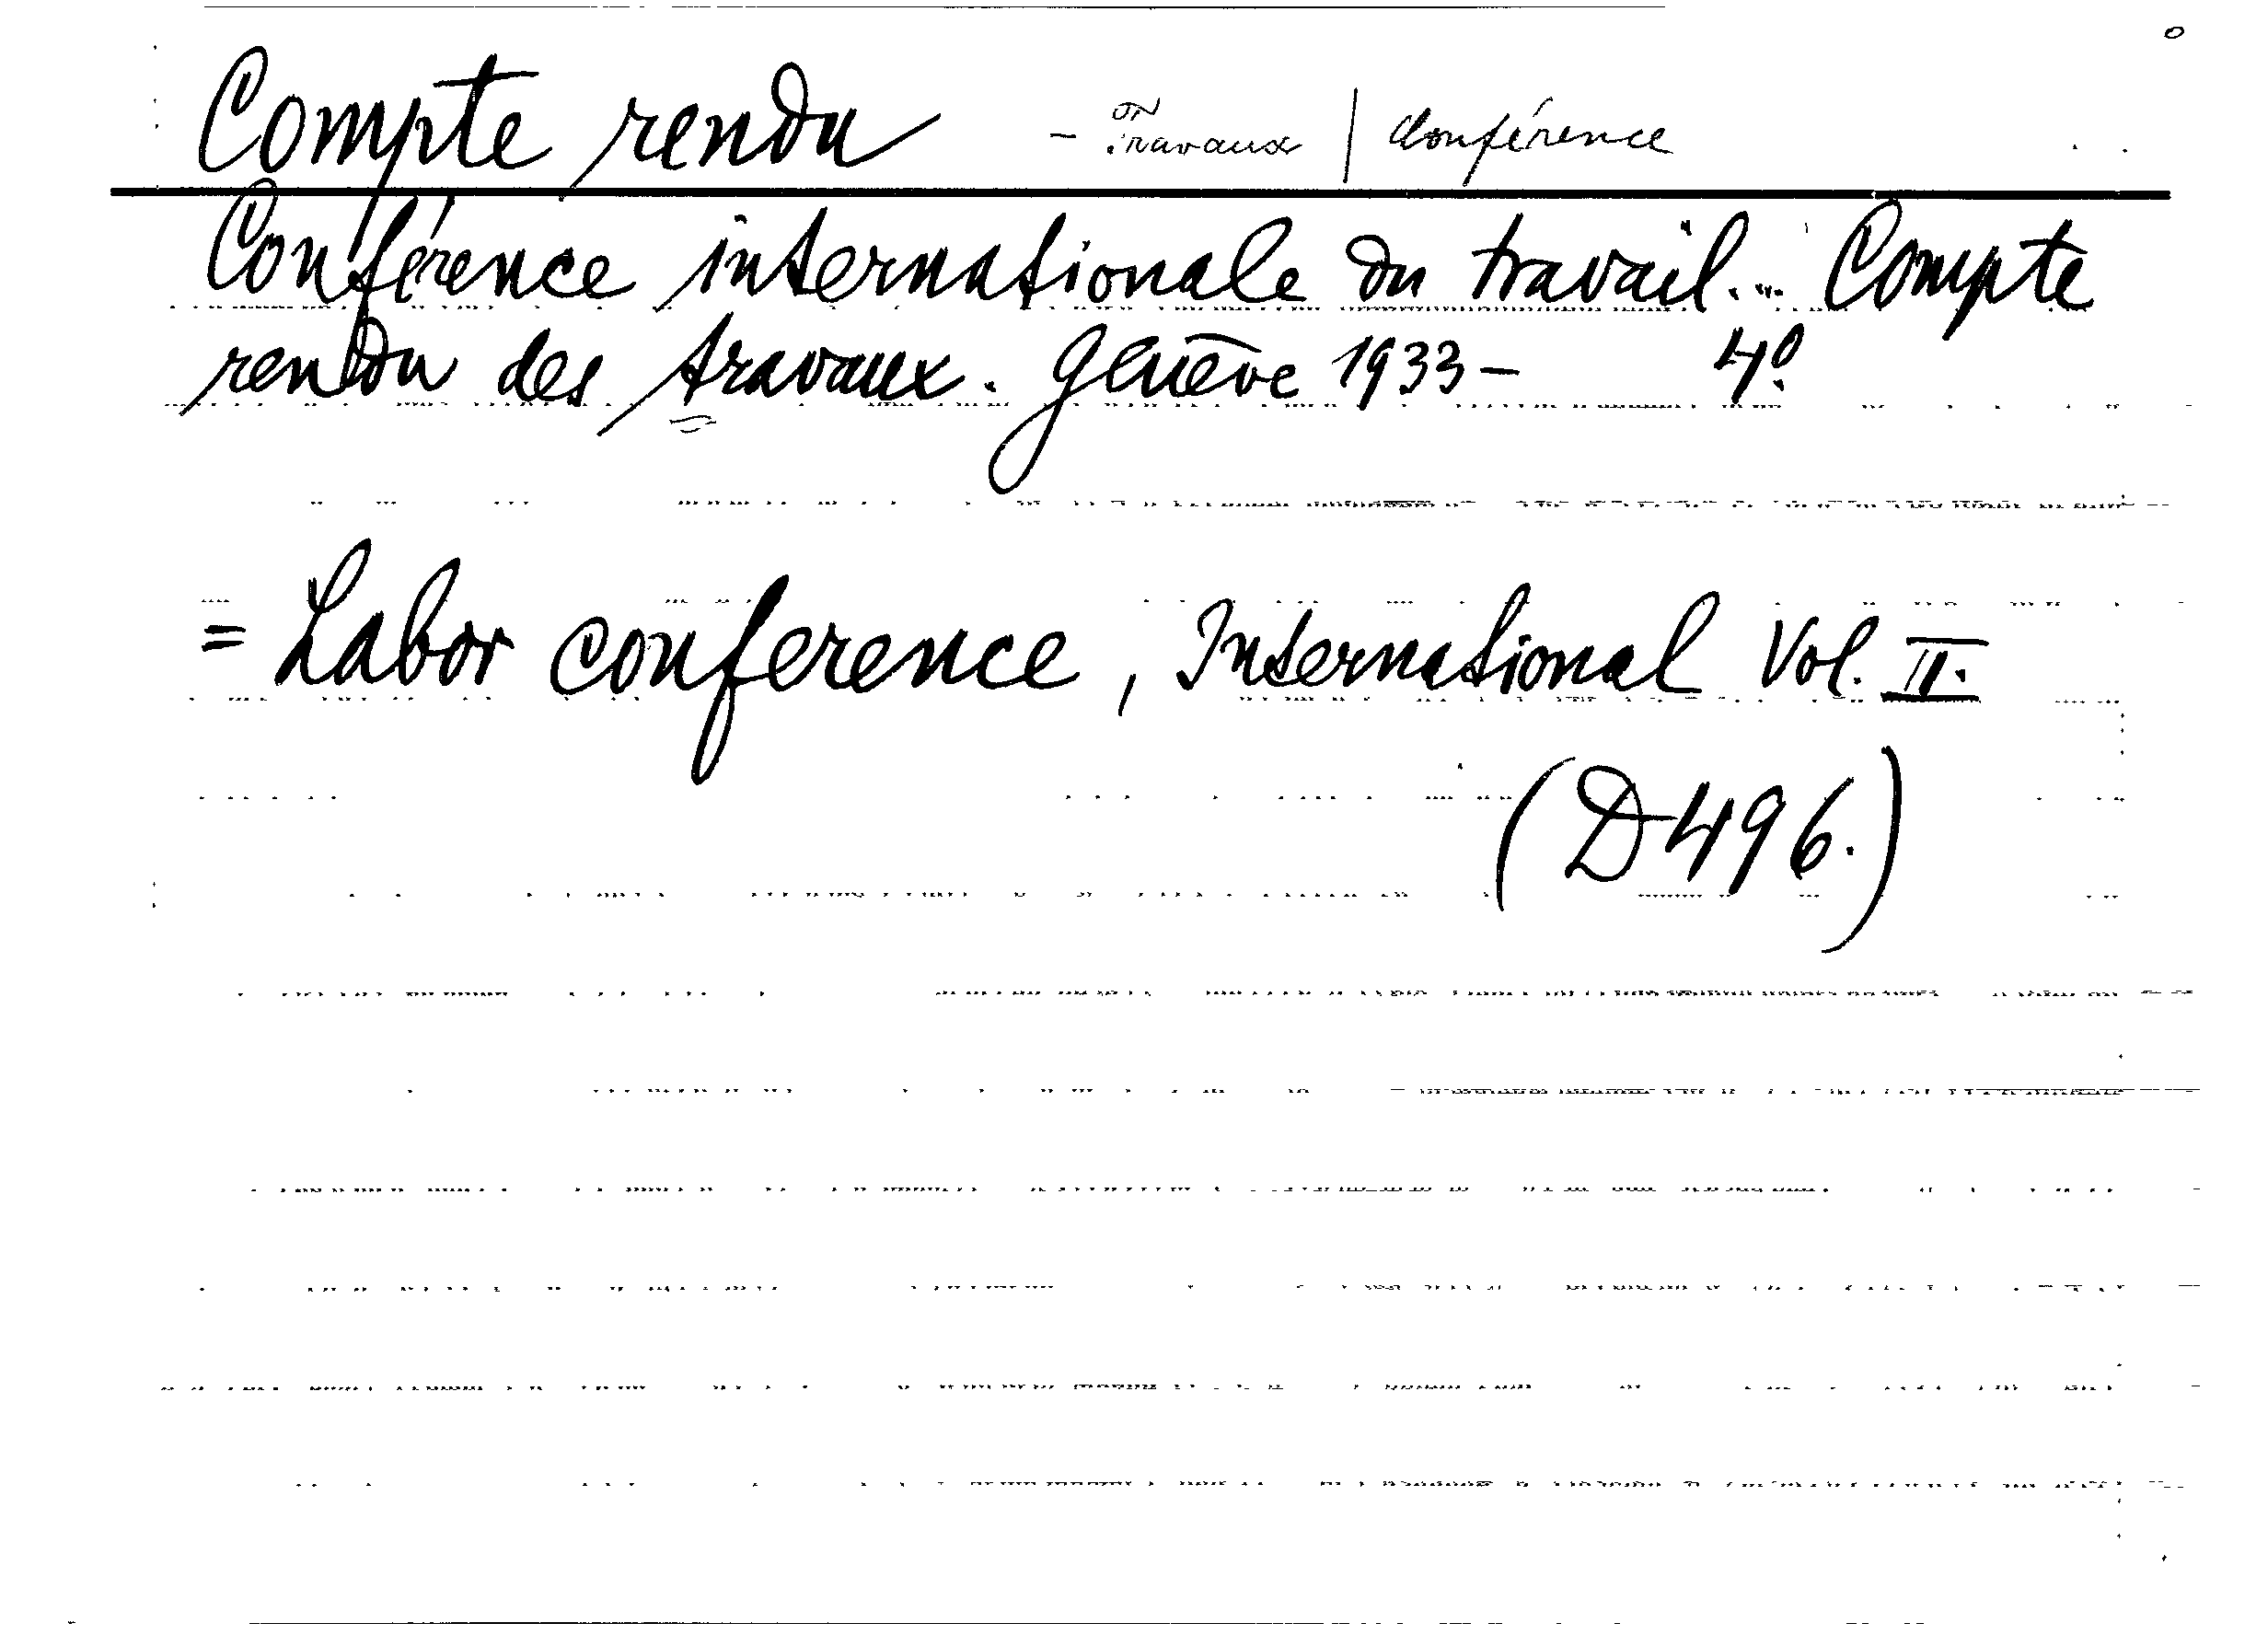 Compte rendu - Travaux / Conférence
Conférence internationale du travail... Compte
rendu des travaux. Genève 1933- 4º
= Labor conference, International Vol. II.
(D496.)